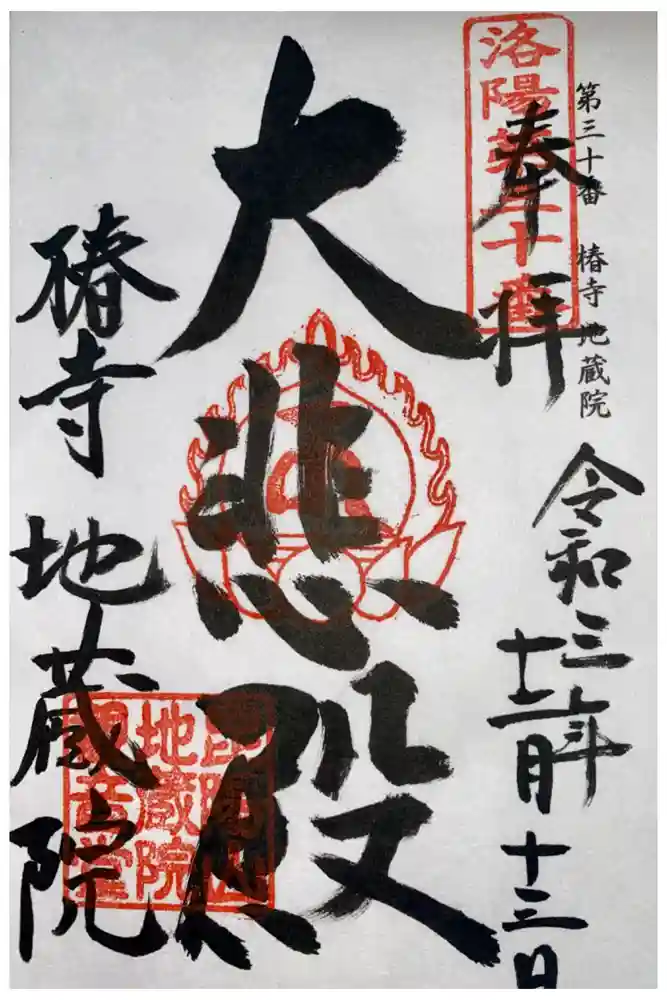 第三十番 椿寺地蔵院
洛陽第三十番
奉拝
令和三年
十二月十三日
大悲殿
椿寺 地蔵院
地蔵院
観音堂